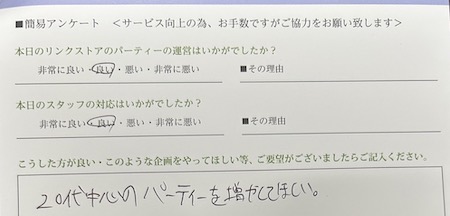 ■簡易アンケート <サービス向上の為、お手数ですがご協力をお願い致します>
本日のリンクストアのパーティーの運営はいかがでしたか?
非常に良い・良い・悪い・非常に悪い ■その理由
本日のスタッフの対応はいかがでしたか?
非常に良い・良い・悪い・非常に悪い ■その理由
こうした方が良い・このような企画をやってほしい等、ご要望がございましたらご記入ください。
20代中心のパーティーを増やしてほしい。